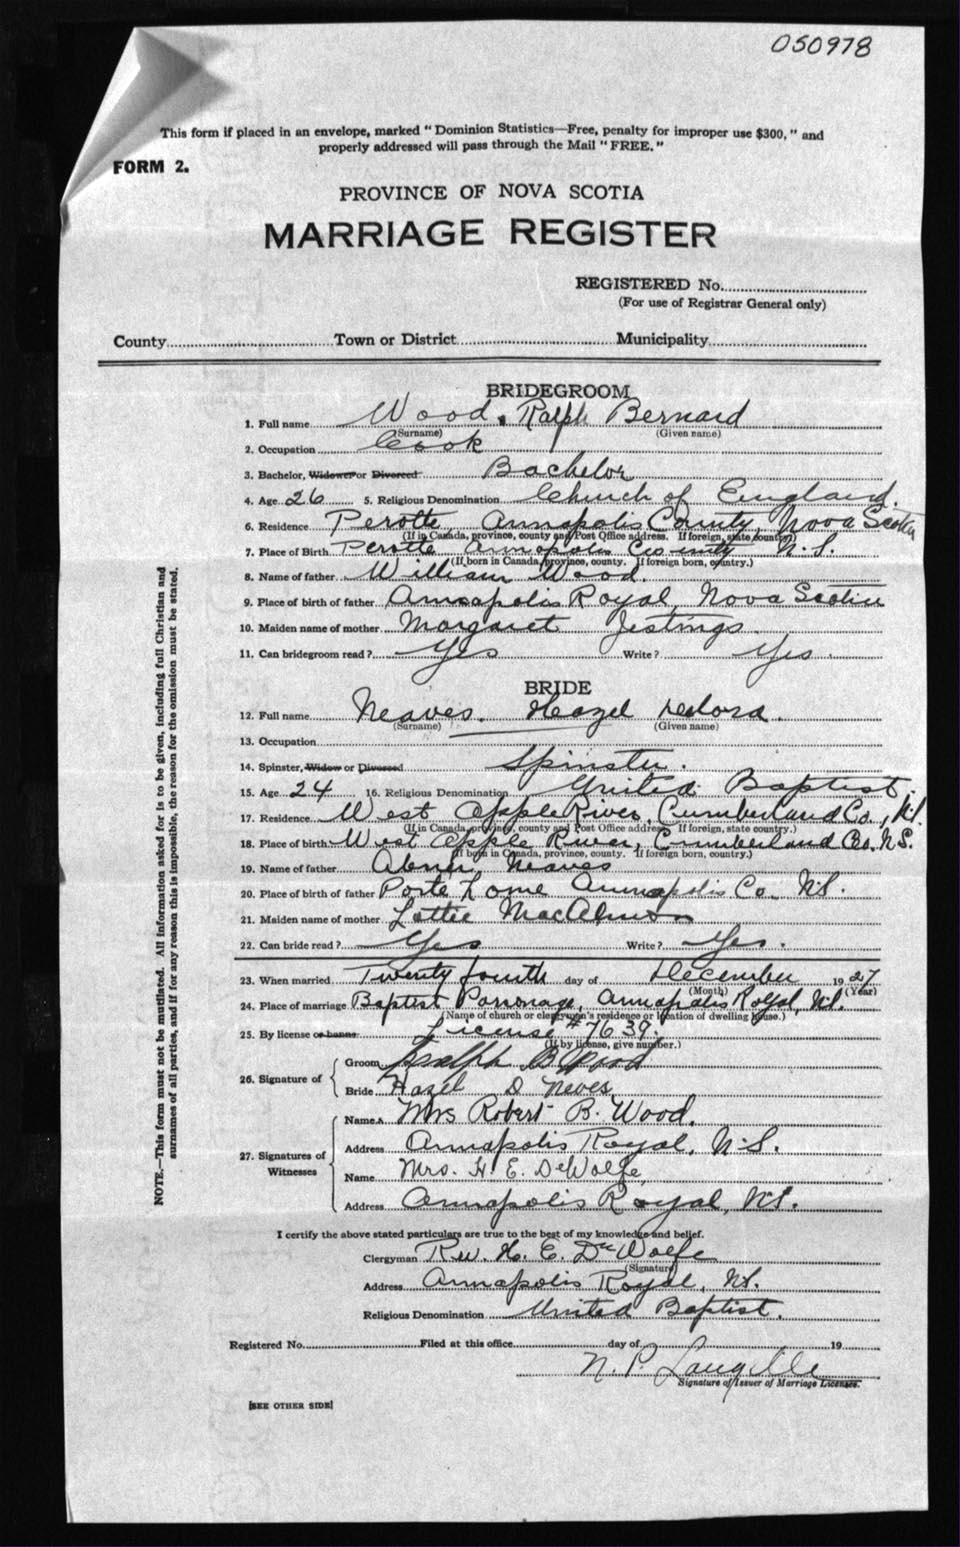 050978
This form if placed in an envelope, marked "Dominion Statistics—Free, penalty for improper use $300," and
properly addressed will pass through the Mail "FREE."
FORM 2.
PROVINCE OF NOVA SCOTIA
MARRIAGE REGISTER
REGISTERED No.
(For use of Registrar General only)
County Town or District Municipality
BRIDEGROOM
1. Full name Wood, Ralph Bernard
(Surname) (Given name)
2. Occupation Cook
3. Bachelor, Widower or Divorced Bachelor
4. Age 26 5. Religious Denomination Church of England.
6. Residence Perotte, Annapolis County, Nova Scotia
(If in Canada, province, county and Post Office address. If foreign, state country)
7. Place of Birth Perotte Annapolis County N.S.
(If born in Canada, province, county. If foreign born, country.)
8. Name of father William Wood.
9. Place of birth of father Annapolis Royal, Nova Scotia
10. Maiden name of mother Margaret Jestings.
11. Can bridegroom read? Yes Write? Yes.
BRIDE
12. Full name Neaves. Hazel
(Surname) (Given name)
13. Occupation
14. Spinster, Widow or Divorced Spinster.
15. Age 24 16. Religious Denomination United Baptist.
17. Residence West Apple River, Cumberland Co., N.S.
(If in Canada, province, county and Post Office address. If foreign, state country.)
18. Place of birth West Apple River, Cumberland Co. N.S.
(If born in Canada, province, county. If foreign born, country.)
19. Name of father Abner Neaves
20. Place of birth of father Porte Lorne Annapolis Co. N.S.
21. Maiden name of mother Lottie
22. Can bride read? Yes Write? Yes.
23. When married Twenty fourth day of December 1927
(Month) (Year)
24. Place of marriage Baptist Parsonage, Annapolis Royal, N.S.
(Name of church or clergyman's residence or location of dwelling house.)
25. By license or banns License #7639.
(If by license, give number.)
26. Signature of
Groom Ralph B Wood
Bride Hazel D Neves
27. Signatures of Witnesses
Name Mrs Robert B. Wood.
Address Annapolis Royal, N.S.
Name Mrs. H. E. DeWolfe,
Address Annapolis Royal, N.S.
I certify the above stated particulars are true to the best of my knowledge and belief.
Clergyman Rev. H. E. DeWolfe
(Signature)
Address Annapolis Royal, N.S.
Religious Denomination United Baptist.
Registered No. Filed at this office day of 19
N. P. Langille
Signature of Issuer of Marriage Licenses.
[SEE OTHER SIDE]
NOTE.—This form must not be mutilated. All information asked for is to be given, including full Christian and
surnames of all parties, and if for any reason this is impossible, the reason for the omission must be stated.